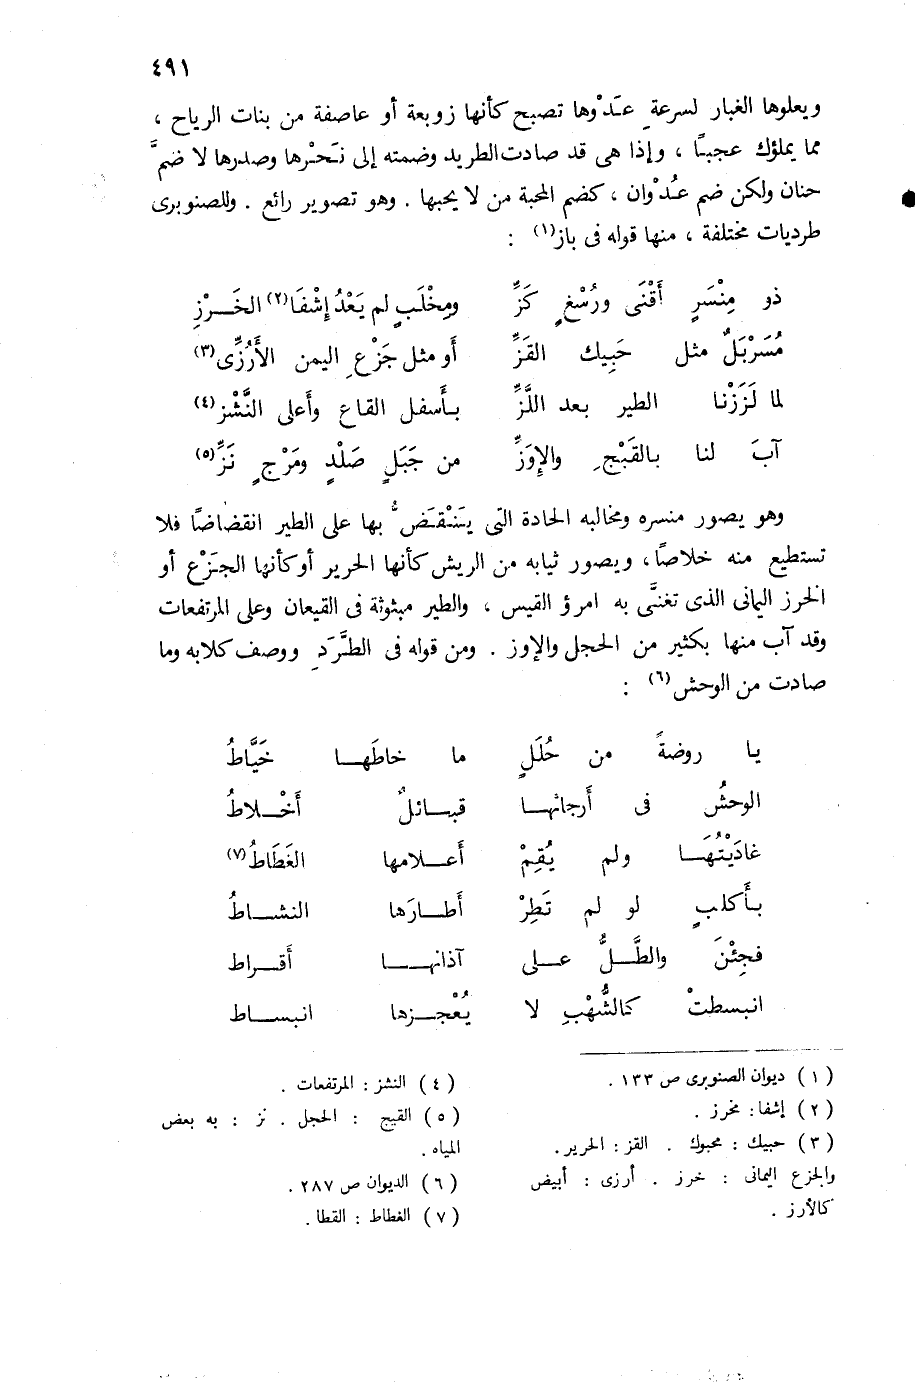 ٤٩١
ويعلوها الغبار لسرعة عَدْوها تصبح كأنها زوبعة أو عاصفة من بنات الرياح ،
مما يملؤك عجبًا ، وإذا هى قد صادت الطريد وضمته إلى نَحْرها وصدرها لا ضمَّ
حنان ولكن ضم عُدْوان ، كضم المحبة من لا يحبها . وهو تصوير رائع . وللصنوبرى
طرديات مختلفة ، منها قوله فى باز(١) :
ذو مِنْسَرٍ أَقْنَى ورُسْغٍ كَزِّ ومِخْلَبٍ لم يَعْدُ إِشْفَا(٢) الخَرْزِ
مُسَرْبَلٌ مثل حَبِيك القَزِّ أو مثل جَزْعِ اليمن الأَرُزِّى(٣)
لما لَزَزْنا الطير بعد اللَّزِّ بأَسفل القاع وأَعلى النَّشْز(٤)
آبَ لنا بالقَبْجِ والإِوَزِّ من جَبَلٍ صَلْدٍ ومَرْجٍ نَزِّ(٥)
وهو يصور منسره ومخالبه الحادة التى يَنْقَضُّ بها على الطير انقضاضًا فلا
تستطيع منه خلاصًا، ويصور ثيابه من الريش كأنها الحرير أو كأنها الجَزْع أو
الخرز اليمانى الذى تغنَّى به امرؤ القيس ، والطير مبثوثة فى القيعان وعلى المرتفعات
وقد آب منها بكثير من الحجل والإوز . ومن قوله فى الطَّرَدِ ووصف كلابه وما
صادت من الوحش(٦) :
يا روضةً من حُلَلٍ ما خاطَها خَيَّاطُ
الوحشُ فى أَرجائها قبائلٌ أَخْلاطُ
غادَيْتُهَا ولم يُقِمْ أَعلامها الغَطَاطُ(٧)
بأَكلبٍ لو لم تَطِرْ أَطارَها النشاطُ
فجِئْنَ والطَّلُّ على آذانها أَقراط
انبسطتْ كالشُّهْبِ لا يُعْجزها انبساط
(١) ديوان الصنوبرى ص ١٣٣ .
(٢) إشفا: مخرز .
(٣) حبيك : محبوك . القز : الحرير.
والجزع اليمانى : خرز . أرزى : أبيض
كالأرز .
(٤) النشز : المرتفعات .
(٥) القبج : الحجل . نز : به بعض
المياه .
(٦) الديوان ص ٢٨٧ .
(٧) الغطاط : القطا .